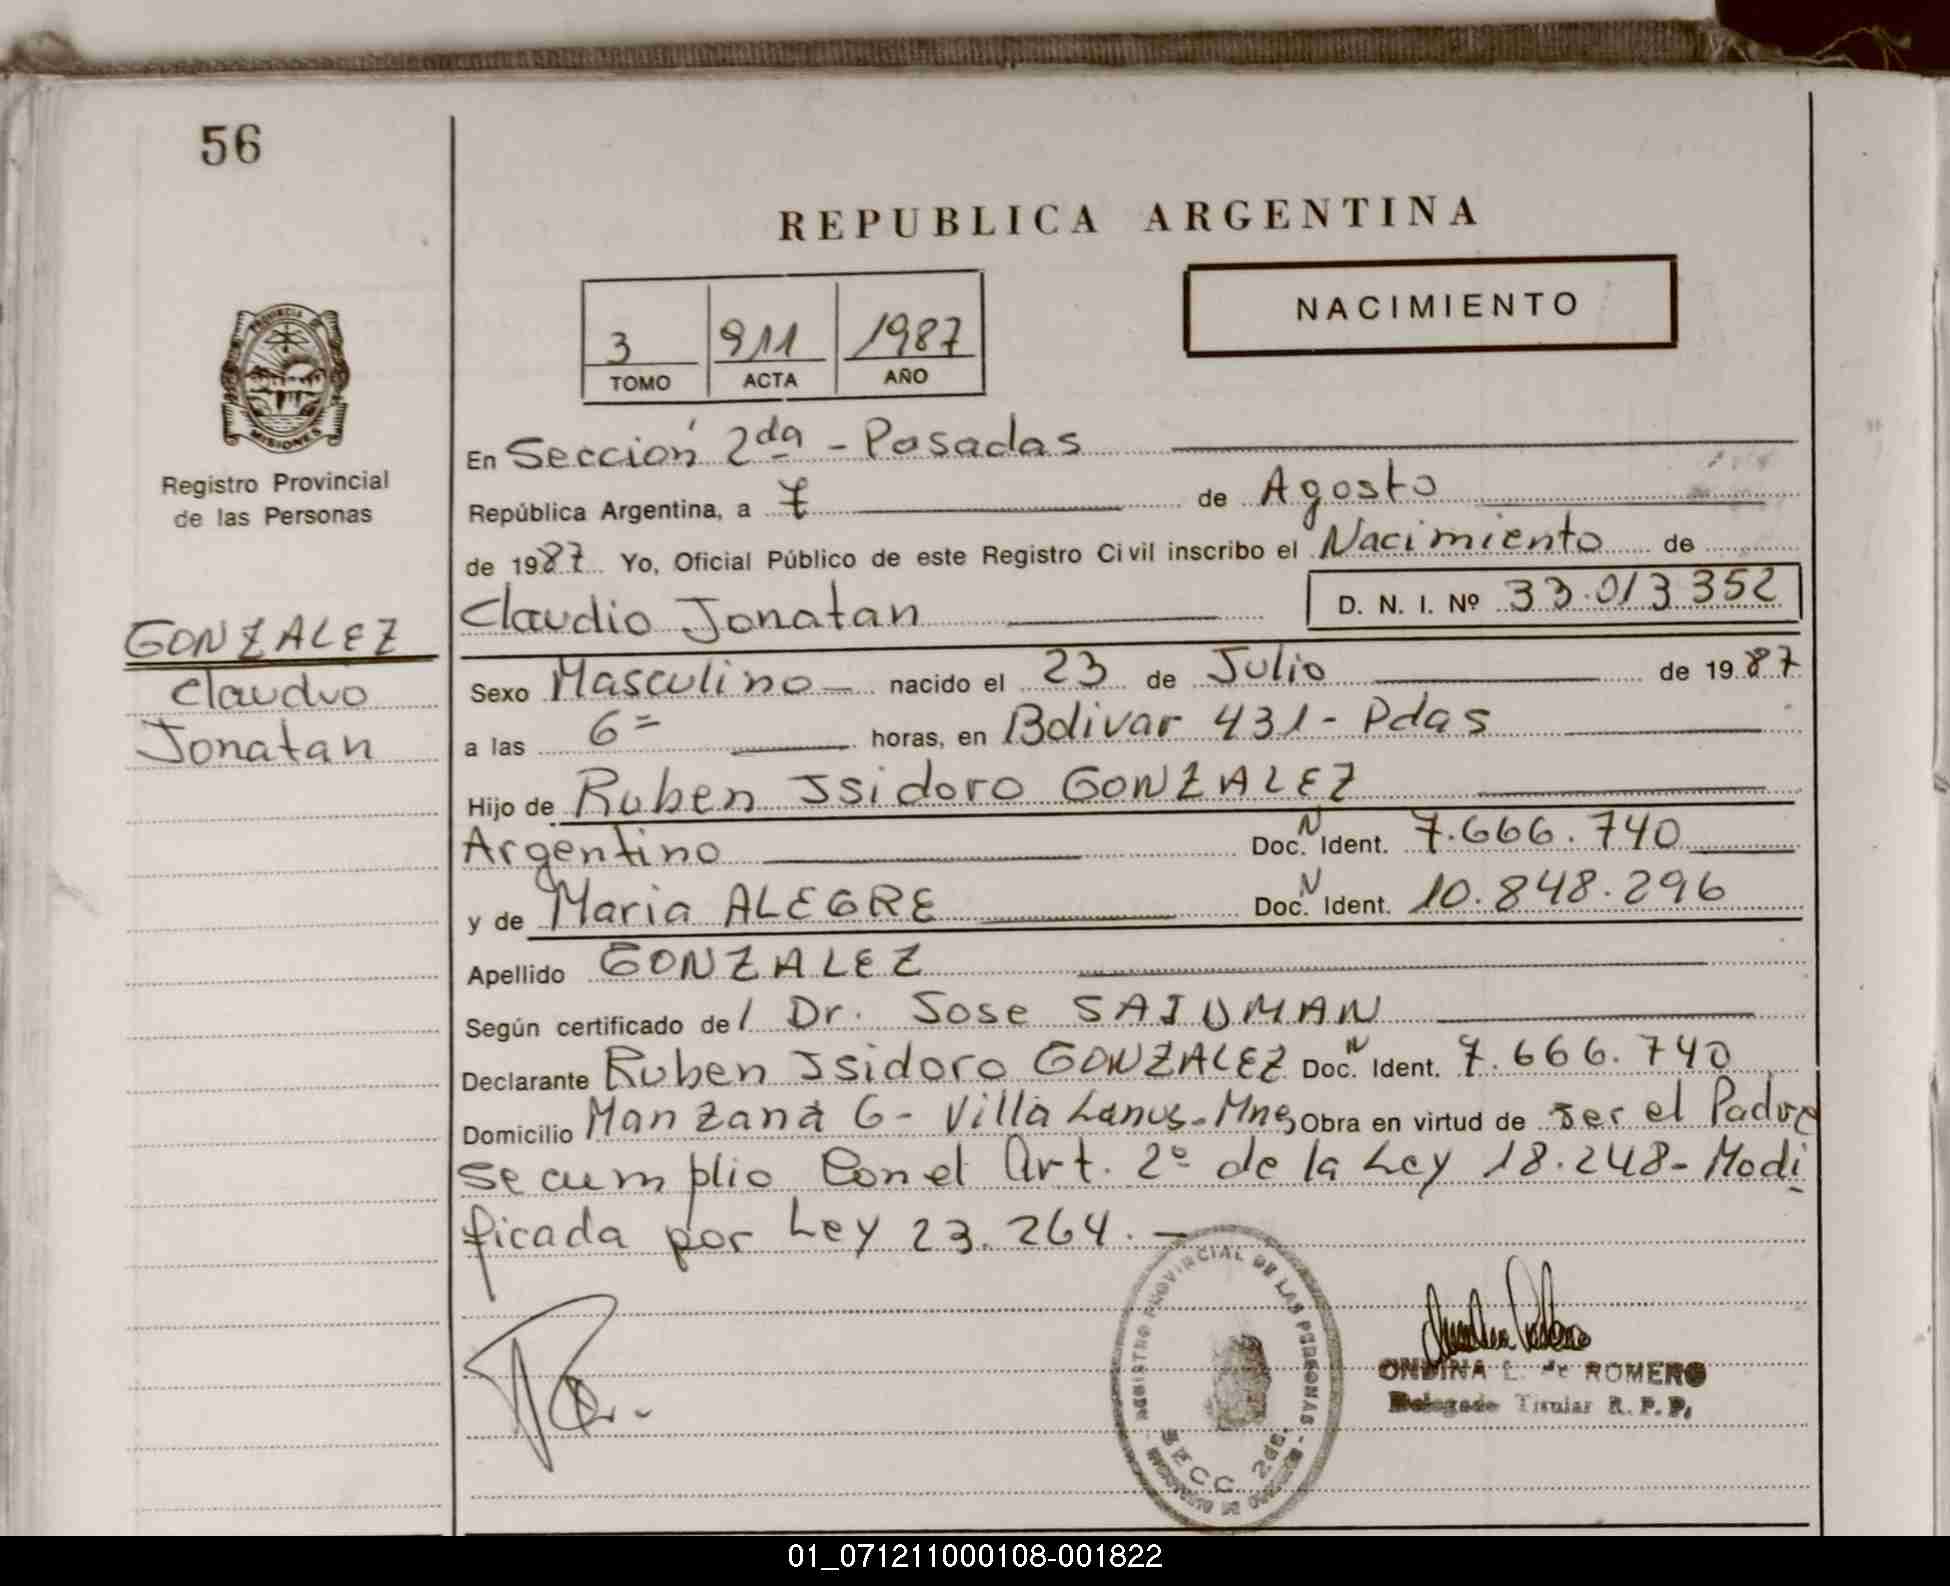 56
REPUBLICA ARGENTINA
NACIMIENTO
3 911 1987
TOMO ACTA AÑO
PROVINCIA DE
MISIONES
Registro Provincial
de las Personas
GONZALEZ
Claudio
Jonatan
En Sección 2da - Posadas
República Argentina, a 7 de Agosto
de 1987 Yo, Oficial Público de este Registro Civil inscribo el Nacimiento de
Claudio Jonatan D. N. I. Nº 33.013.352
Sexo Masculino nacido el 23 de Julio de 1987
a las 6= horas, en Bolivar 431 - Pdas
Hijo de Ruben Isidoro GONZALEZ
Argentino Doc. N Ident. 7.666.740
y de Maria ALEGRE Doc. N Ident. 10.848.296
Apellido GONZALEZ
Según certificado del Dr. Jose SAIUMAN
Declarante Ruben Isidoro GONZALEZ Doc. N Ident. 7.666.740
Domicilio Manzana 6 - Villa Lanus - Mnes Obra en virtud de ser el Padre
se cumplio Con el Art. 2º de la Ley 18.248 - Modi
ficada por Ley 23.264. -
REGISTRO PROVINCIAL DE LAS PERSONAS -
SECC. 2da.
ONDINA L. de ROMERO
Delegado Titular R. P. P.
01_071211000108-001822